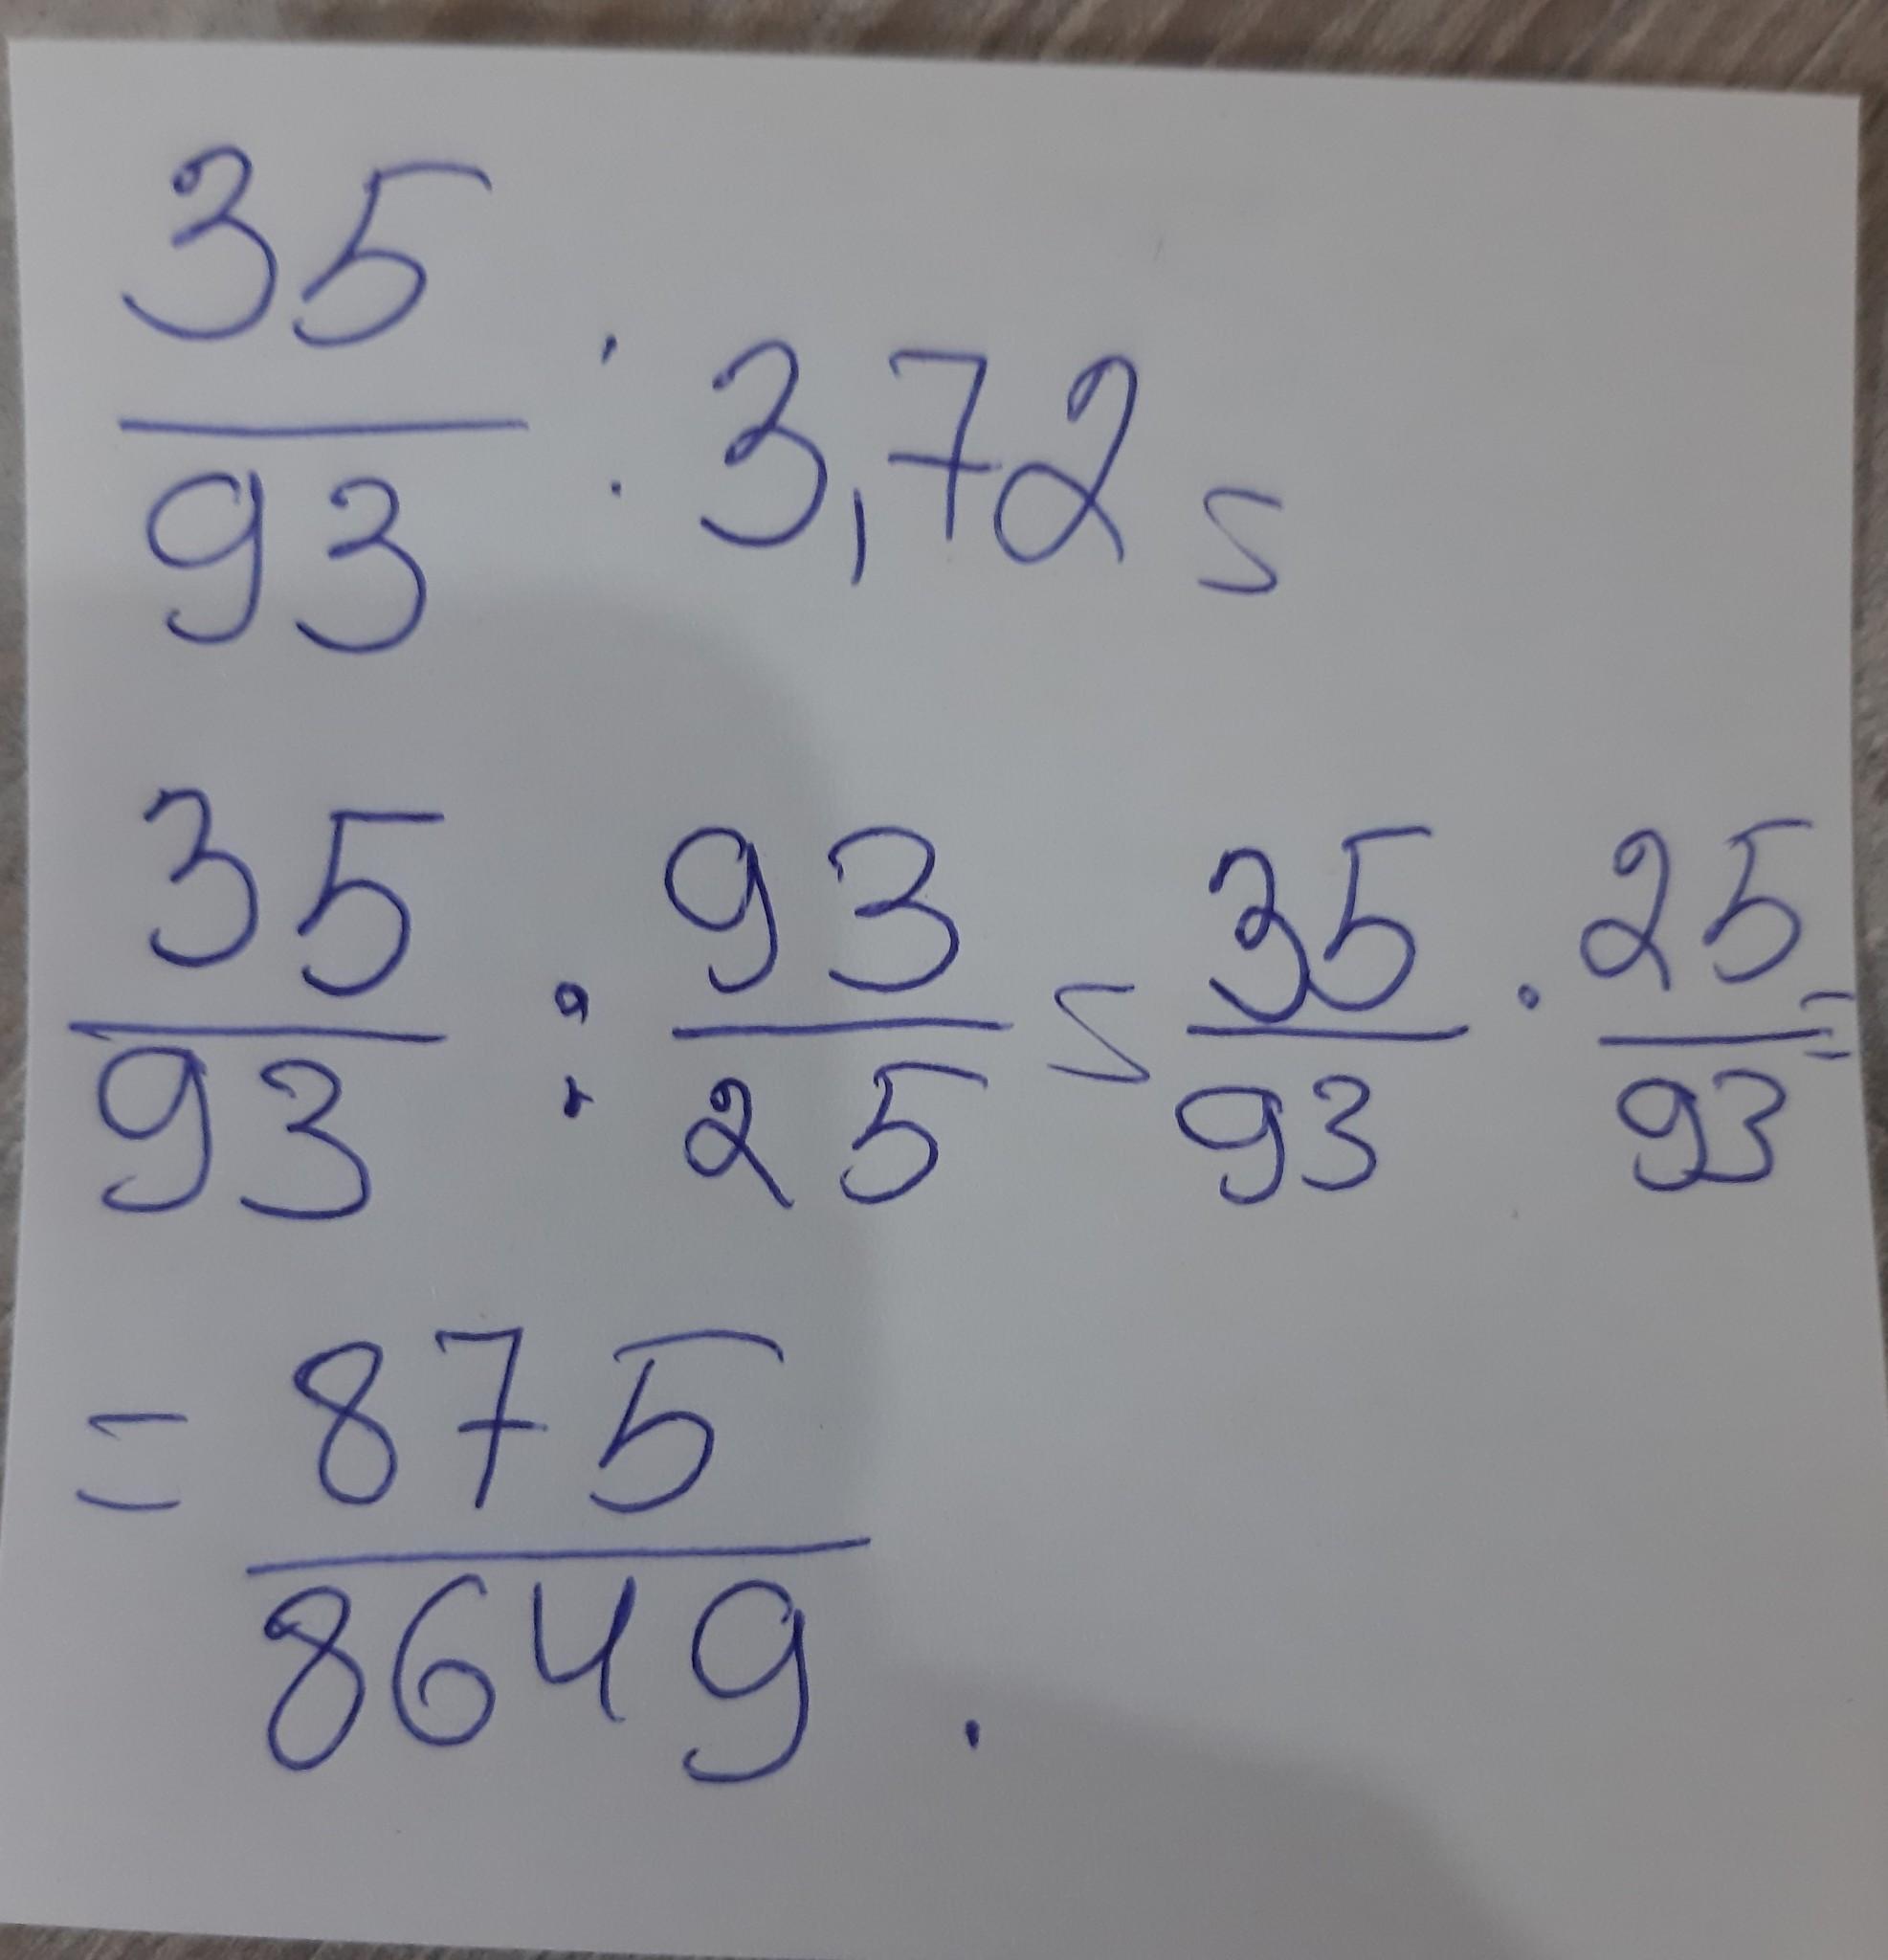 35/93 : 3,72 =
35/93 : 93/25 = 35/93 · 25/93 =
= 875/8649.